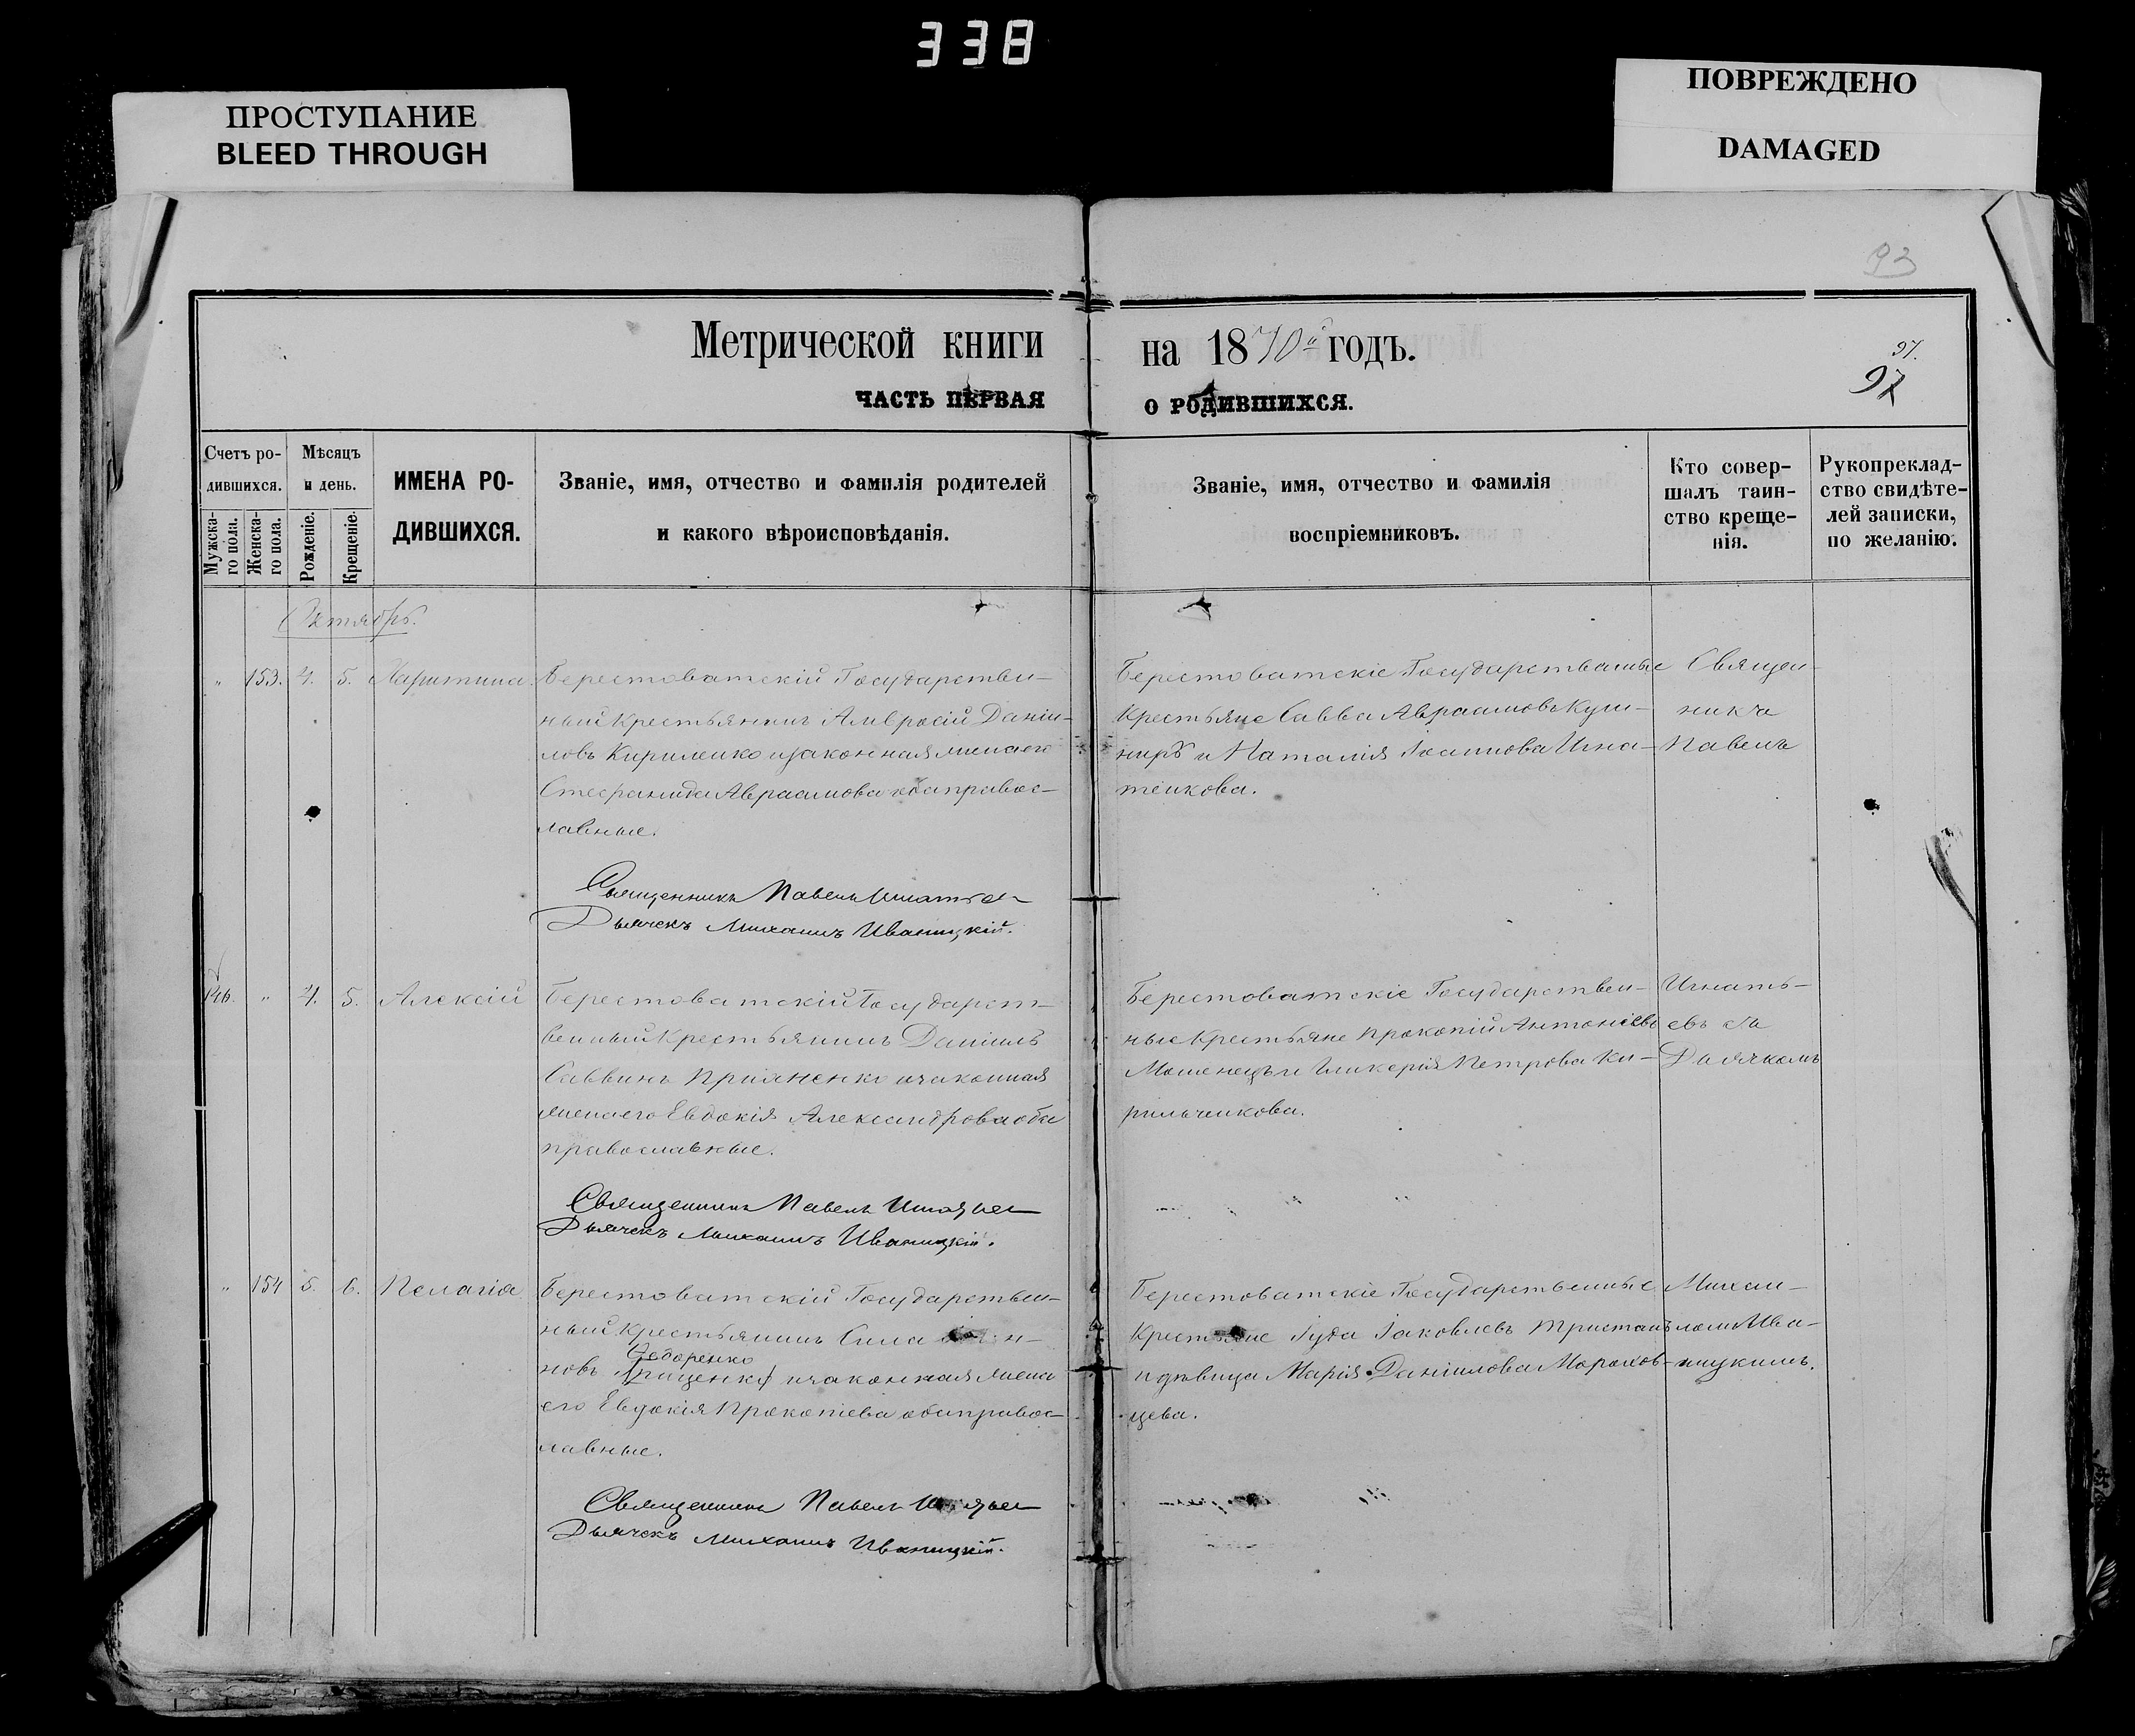 338
ПРОСТУПАНИЕ
BLEED THROUGH
ПОВРЕЖДЕНО
DAMAGED
93
Метрической книги
на 1870й годъ.
97.
97
ЧАСТЬ ПЕРВАЯ
О РОДИВШИХСЯ.
Счетъ ро-
дившихся.
Мужска-
го пола.
Женска-
го пола.
Мѣсяцъ
и день.
Рожденіе.
Крещеніе.
ИМЕНА РО-
ДИВШИХСЯ.
Званіе, имя, отчество и фамилія родителей
и какого вѣроисповѣданія.
Званіе, имя, отчество и фамилія
воспріемниковъ.
Кто совер-
шалъ таин-
ство креще-
нія.
Рукоприклад-
ство свидѣте-
лей записки,
по желанію.
Октябрь.
" 153. 4. 5. Харитина
Берестоватскій Государствен-
ный Крестьянинъ Амвросій Даніи-
ловъ Кириленко и законная жена его
Стефанида Авраамова оба правос-
лавные.
Священникъ Павелъ Игнатьев
Дьячекъ Михаилъ Иваницкій.
Берестоватскіе Государственные
Крестьяне Савва Авраамовъ Куш-
ниръ и Наталія Іоаннова Игна-
тенкова.
Священ-
никъ
Павелъ
146. " 4. 5. Алексій
Берестоватскій Государст-
венный Крестьянинъ Даніилъ
Саввинъ и законная
жена его Евдокія Александрова оба
православные.
Священникъ Павелъ Игнатьев
Дьячекъ Михаилъ Иваницкій.
Берестоватскіе Государствен-
ные Крестьяне Прокопій Антоніевъ
Мошенецъ и Гликерія Петрова Ки-
рильченкова.
Игнать-
евъ съ
Дьячкомъ
" 154 5. 6. Пелагія
Берестоватскій Государствен-
ный Крестьянинъ Сила
новъ Грищенко и законная жена
Федоренко
его Евдокія Прокопіева оба правос-
лавные.
Священникъ Павелъ Игнатьев
Дьячекъ Михаилъ Иваницкій.
Берестоватскіе Государственные
Крестьяне Іуда Іаковлевъ Тристанъ
и дѣвица Марія Даніилова Морохов-
цева.
Михаи-
ломъ Ива-
ницкимъ.